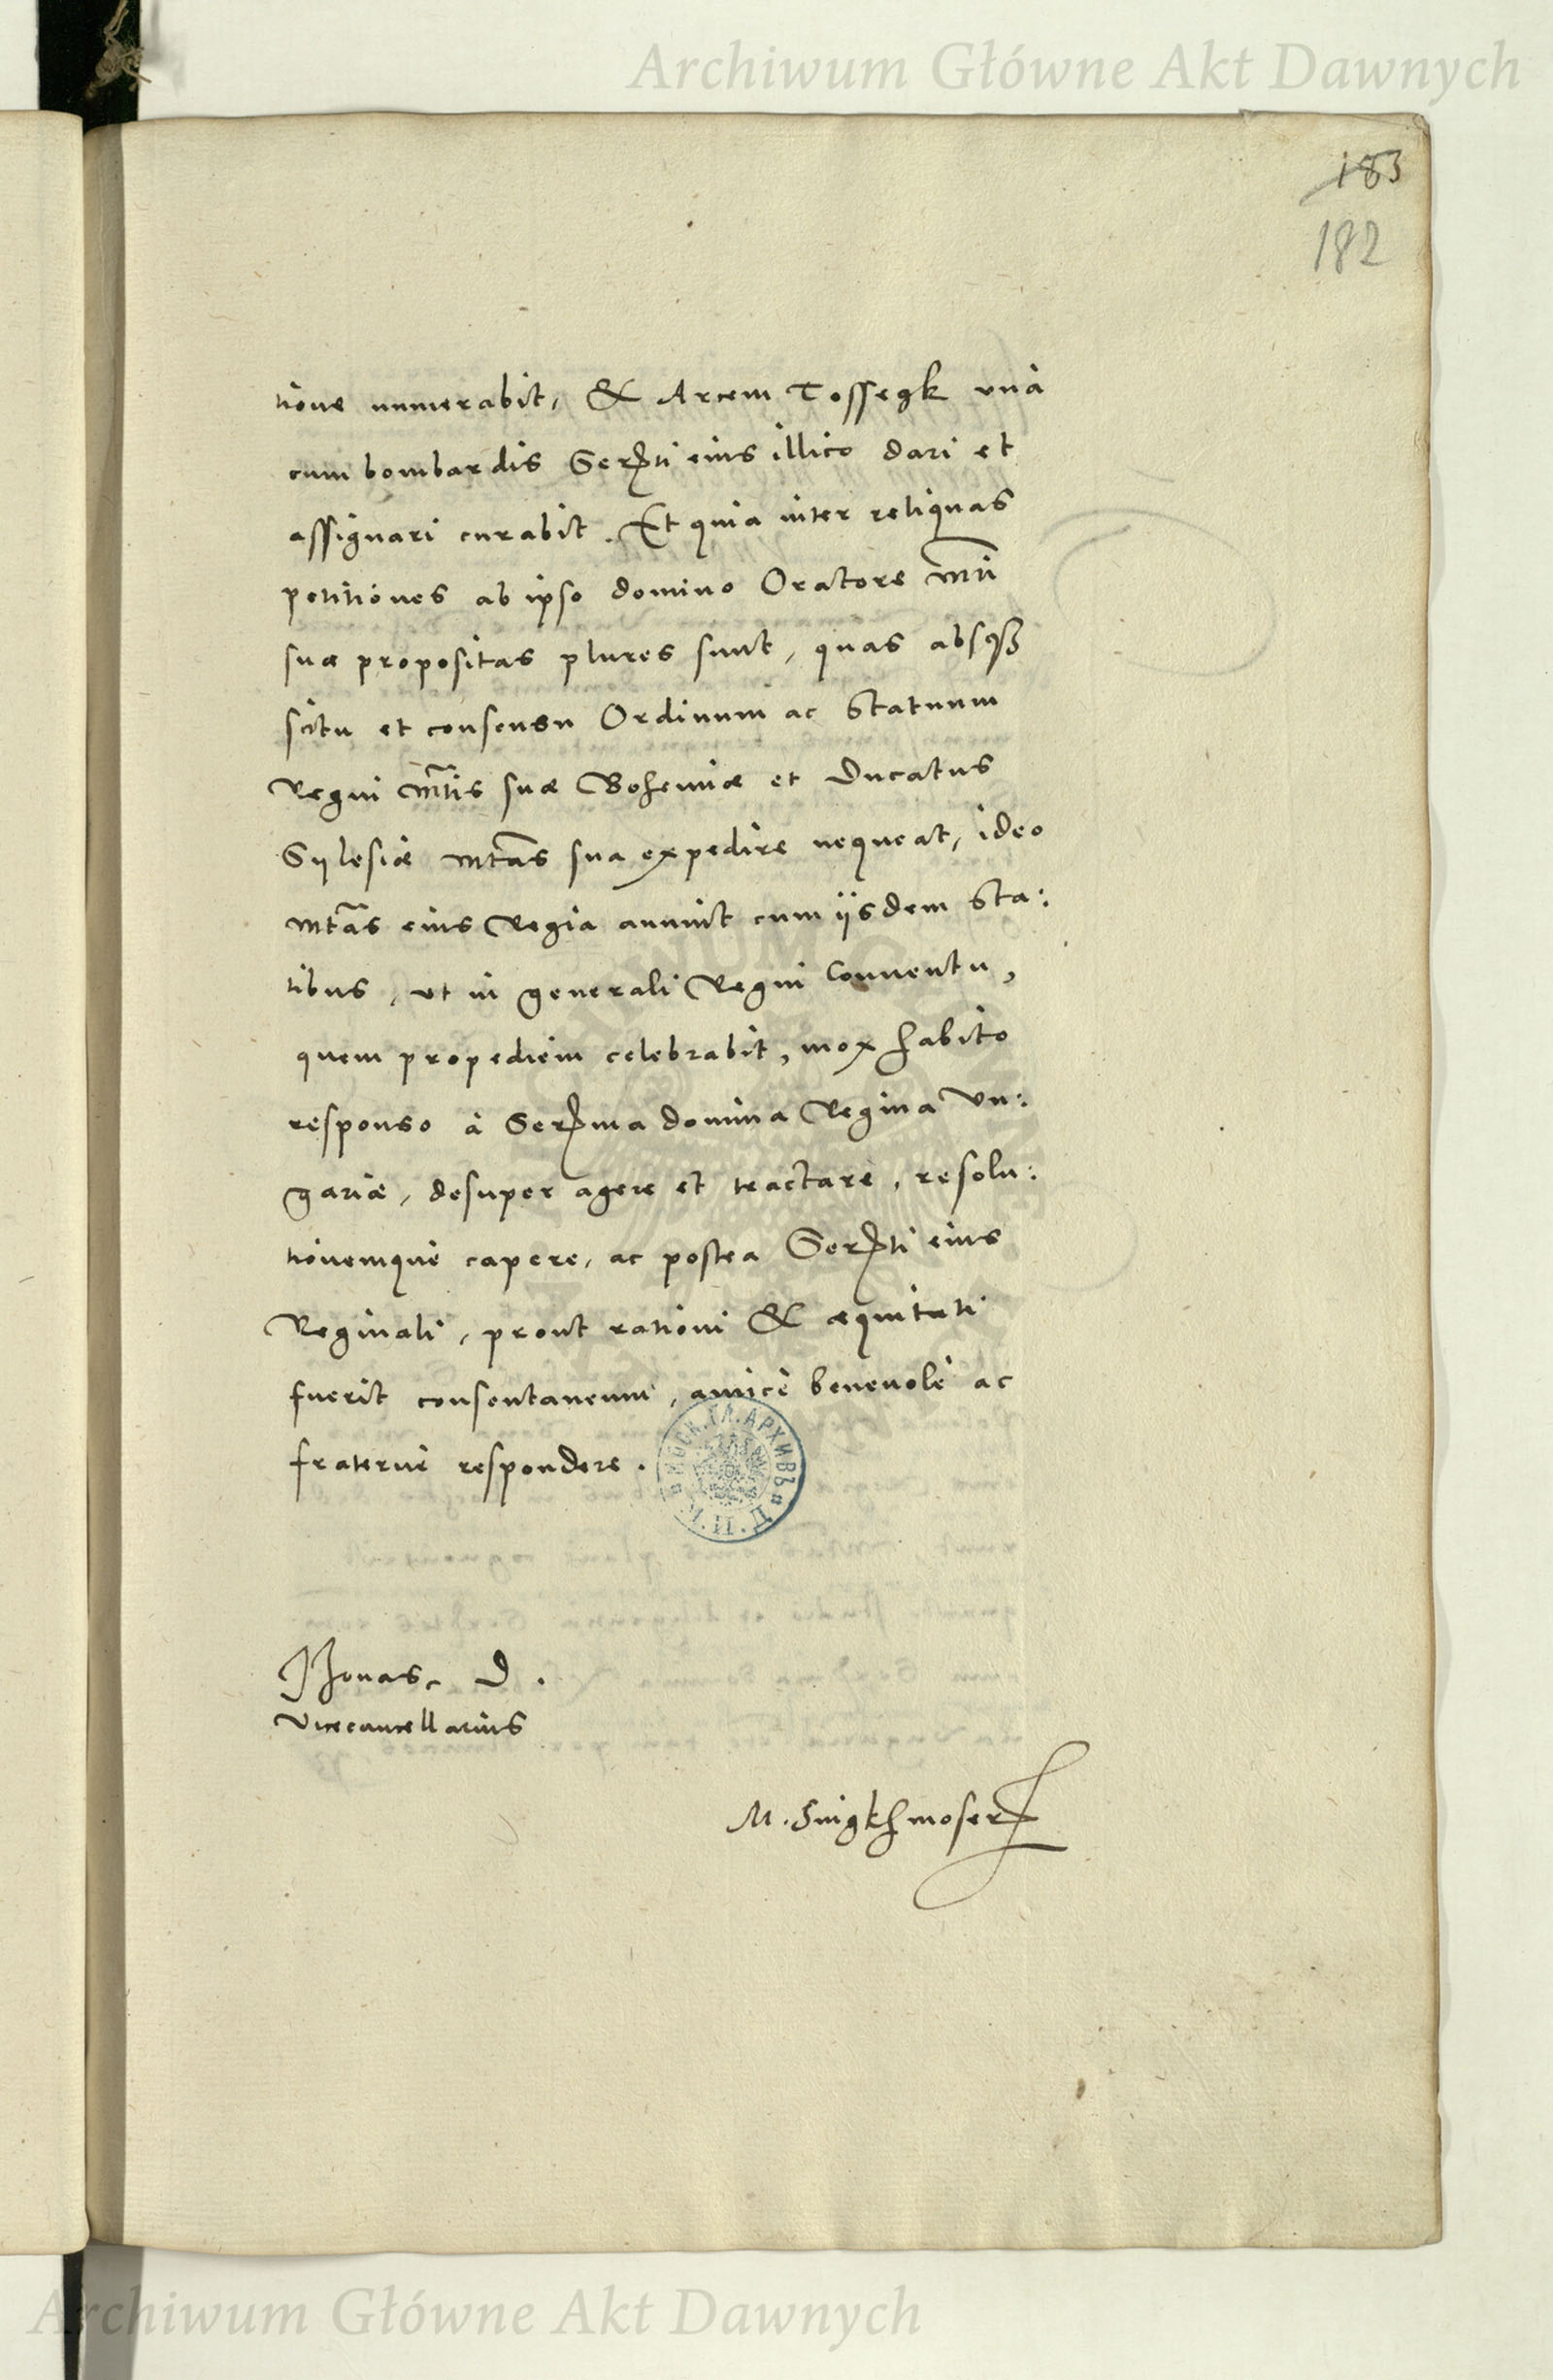 Archiwum Główne Akt Dawnych
183
182
tione numerabit, & Arcem Tossegk unà
cum bombardis Serti eius illico dari et
assignari curabit. Et quia inter reliquas
petitiones ab ipso domino Oratore Mti
suæ propositas plures sunt, quas absqȝ
scitu et consensu Ordinum ac Statuum
Regni Mtis suæ Bohemiæ et Ducatus
Sylesiæ Mtas sua expedire nequeat, ideo
Mtas eius Regia annuit cum iisdem Sta:
tibus, ut in generali Regni Conventu,
quem propediem celebrabit, mox habito
responso à Serma domina Regina Vn:
gariæ, desuper agere et tractare, resolu:
tionemque capere, ac postea Serti eius
Reginali, prout rationi & æquitati
fuerit consentaneum, amicè benevolè ac
fraternè respondere.
Jonas. D.
Vicecancellarius
M. Singkhmoser
Archiwum Główne Akt Dawnych